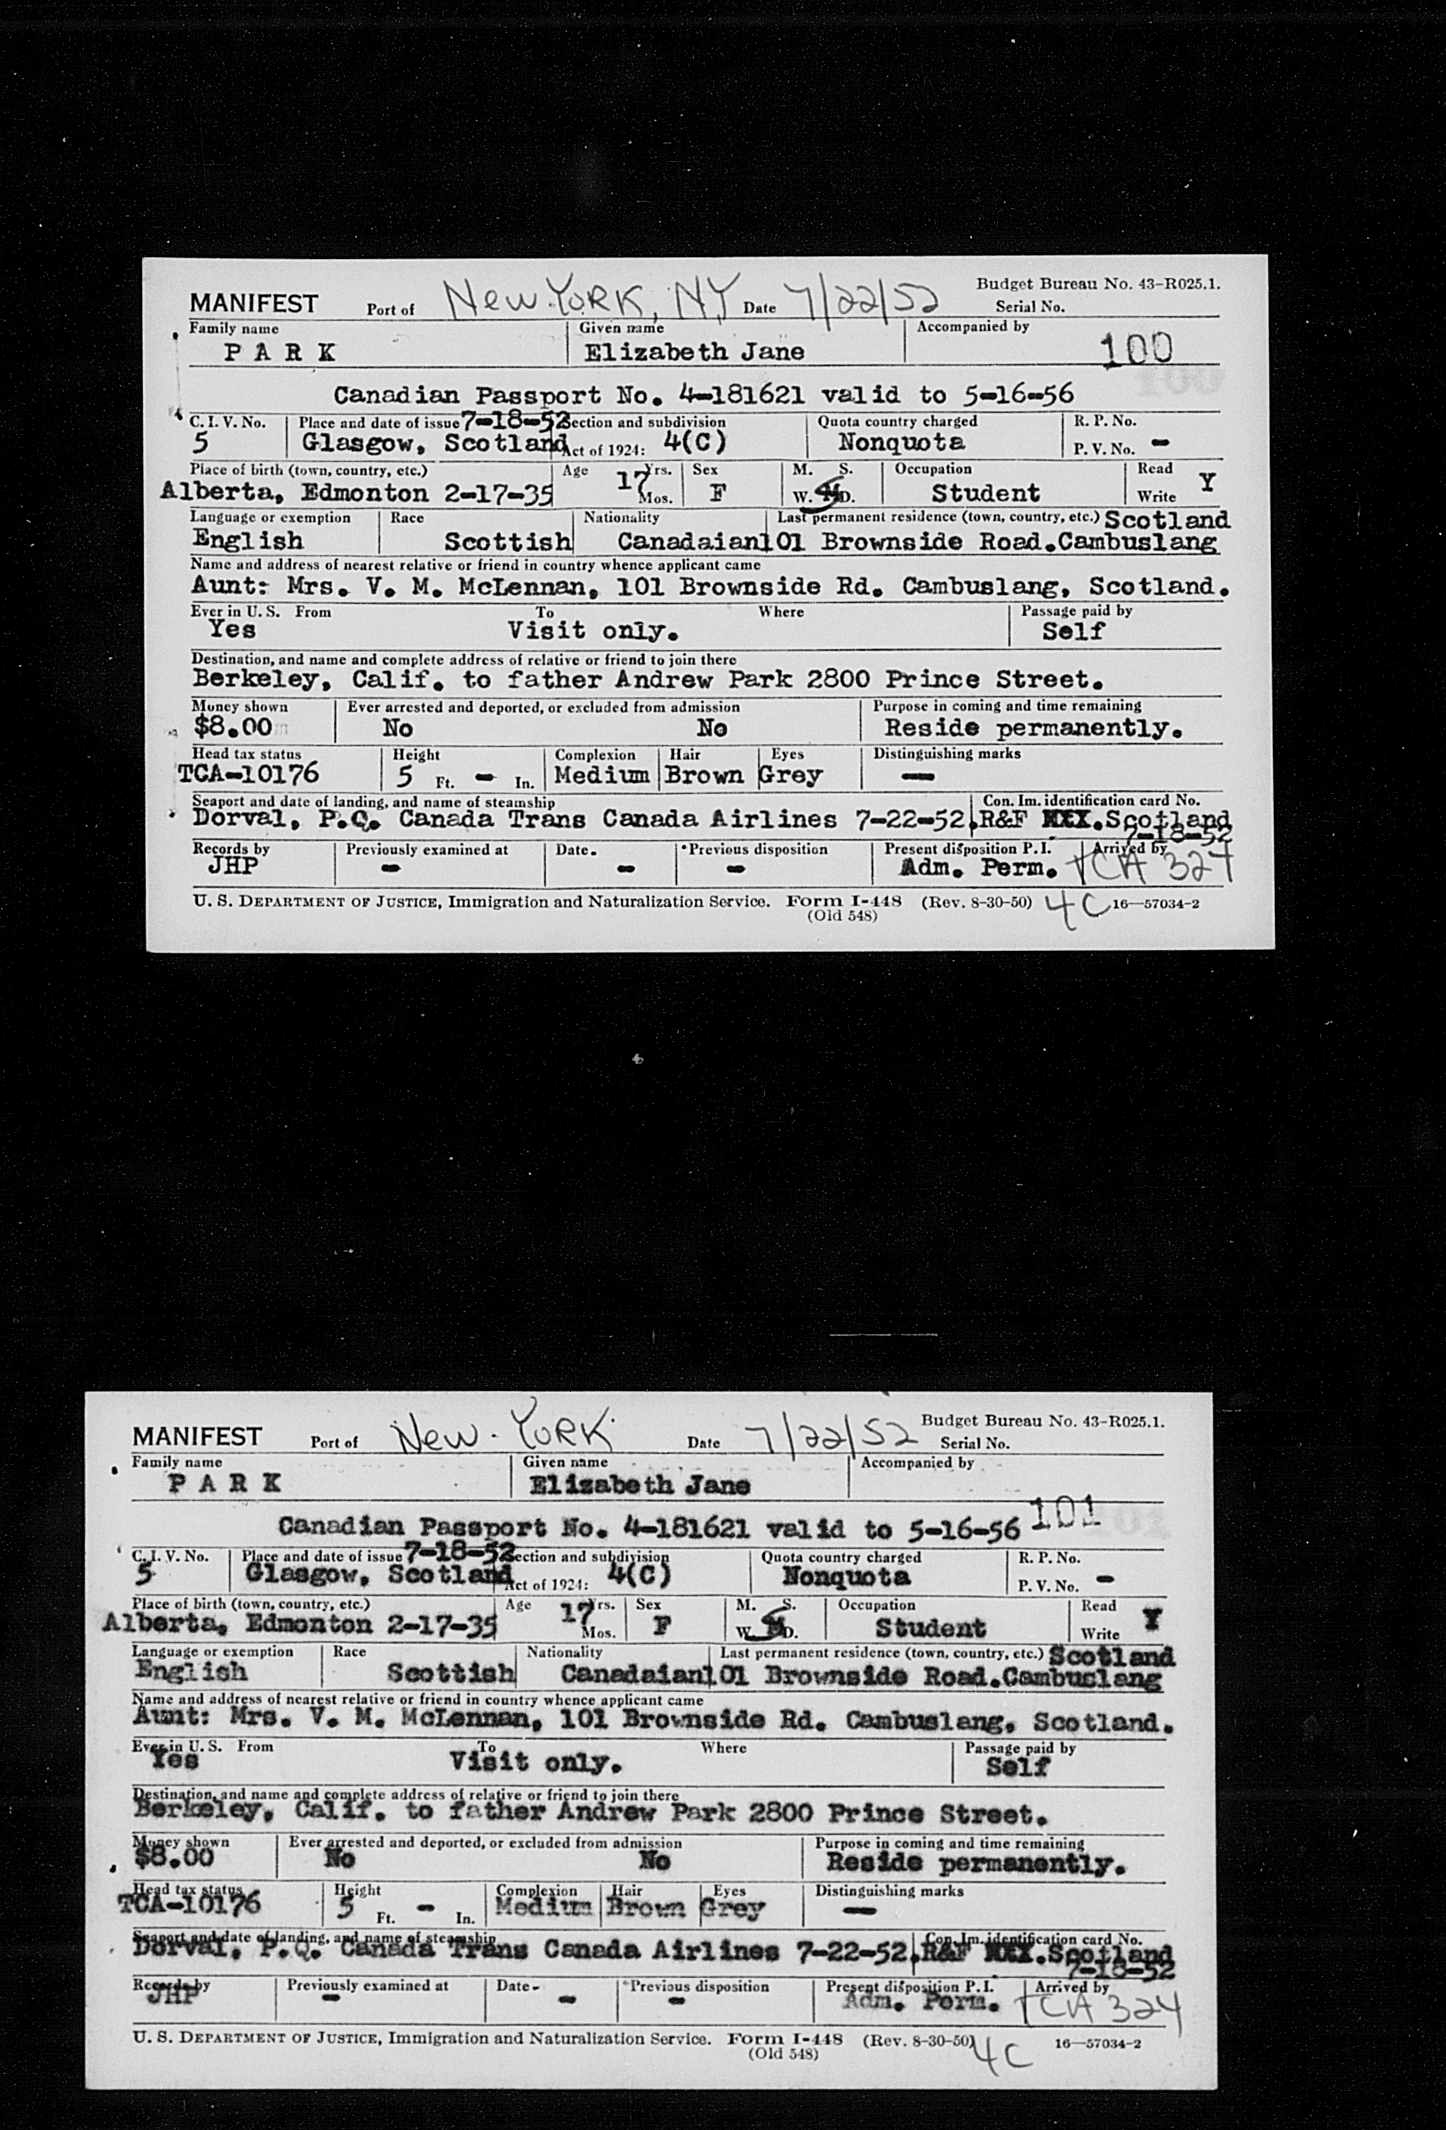 MANIFEST Port of New York, NY Date 7/22/52 Budget Bureau No. 43-R025.1.
Serial No.
Family name Given name Accompanied by
PARK Elizabeth Jane 100
Canadian Passport No. 4-181621 valid to 5-16-56
C. I. V. No. Place and date of issue 7-18-52 Section and subdivision Quota country charged R. P. No.
5 Glasgow, Scotland Act of 1924: 4(C) Nonquota P. V. No. -
Place of birth (town, country, etc.) Age 17 Yrs. Sex M. S. Occupation Read Y
Alberta, Edmonton 2-17-35 Mos. F W. D. Student Write
Language or exemption Race Nationality Last permanent residence (town, country, etc.) Scotland
English Scottish Canadaian 101 Brownside Road.Cambuslang
Name and address of nearest relative or friend in country whence applicant came
Aunt: Mrs. V. M. McLennan, 101 Brownside Rd. Cambuslang, Scotland.
Ever in U. S. From To Where Passage paid by
Yes Visit only. Self
Destination, and name and complete address of relative or friend to join there
Berkeley, Calif. to father Andrew Park 2800 Prince Street.
Money shown Ever arrested and deported, or excluded from admission Purpose in coming and time remaining
$8.00 No No Reside permanently.
Head tax status Height Complexion Hair Eyes Distinguishing marks
TCA-10176 5 Ft. - In. Medium Brown Grey —
Seaport and date of landing, and name of steamship Con. Im. identification card No.
Dorval, P.Q. Canada Trans Canada Airlines 7-22-52. R&F XXX.Scotland
7-18-52
Records by Previously examined at Date- Previous disposition Present disposition P. I. Arrived by
JHP - - - Adm. Perm. TCA 327
U. S. DEPARTMENT OF JUSTICE, Immigration and Naturalization Service. Form I-448 (Rev. 8-30-50) 4C 16—57034-2
(Old 548)
MANIFEST Port of New York Date 7/22/52 Budget Bureau No. 43-R025.1.
Serial No.
Family name Given name Accompanied by
PARK Elizabeth Jane
Canadian Passport No. 4-181621 valid to 5-16-56 101
C. I. V. No. Place and date of issue 7-18-52 Section and subdivision Quota country charged R. P. No.
5 Glasgow, Scotland Act of 1924: 4(C) Nonquota P. V. No. -
Place of birth (town, country, etc.) Age 17 Yrs. Sex M. S. Occupation Read Y
Alberta, Edmonton 2-17-35 Mos. F W. D. Student Write
Language or exemption Race Nationality Last permanent residence (town, country, etc.) Scotland
English Scottish Canadaian 101 Brownside Road.Cambuslang
Name and address of nearest relative or friend in country whence applicant came
Aunt: Mrs. V. M. McLennan, 101 Brownside Rd. Cambuslang, Scotland.
Ever in U. S. From To Where Passage paid by
Yes Visit only. Self
Destination, and name and complete address of relative or friend to join there
Berkeley, Calif. to father Andrew Park 2800 Prince Street.
Money shown Ever arrested and deported, or excluded from admission Purpose in coming and time remaining
$8.00 No No Reside permanently.
Head tax status Height Complexion Hair Eyes Distinguishing marks
TCA-10176 5 Ft. - In. Medium Brown Grey —
Seaport and date of landing, and name of steamship Con. Im. identification card No.
Dorval, P.Q. Canada Trans Canada Airlines 7-22-52. R&F XXX.Scotland
7-18-52
Records by Previously examined at Date- Previous disposition Present disposition P. I. Arrived by
JHP - - - Adm. Perm. TCA 324
U. S. DEPARTMENT OF JUSTICE, Immigration and Naturalization Service. Form I-448 (Rev. 8-30-50) 4C 16—57034-2
(Old 548)